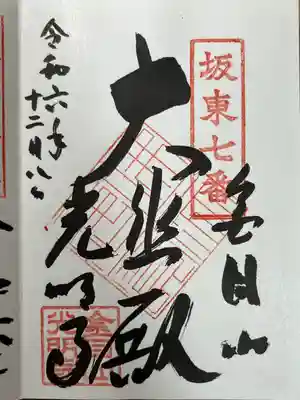 坂東七番
金目山
大悲殿
光明寺
令和六年
十二月八日